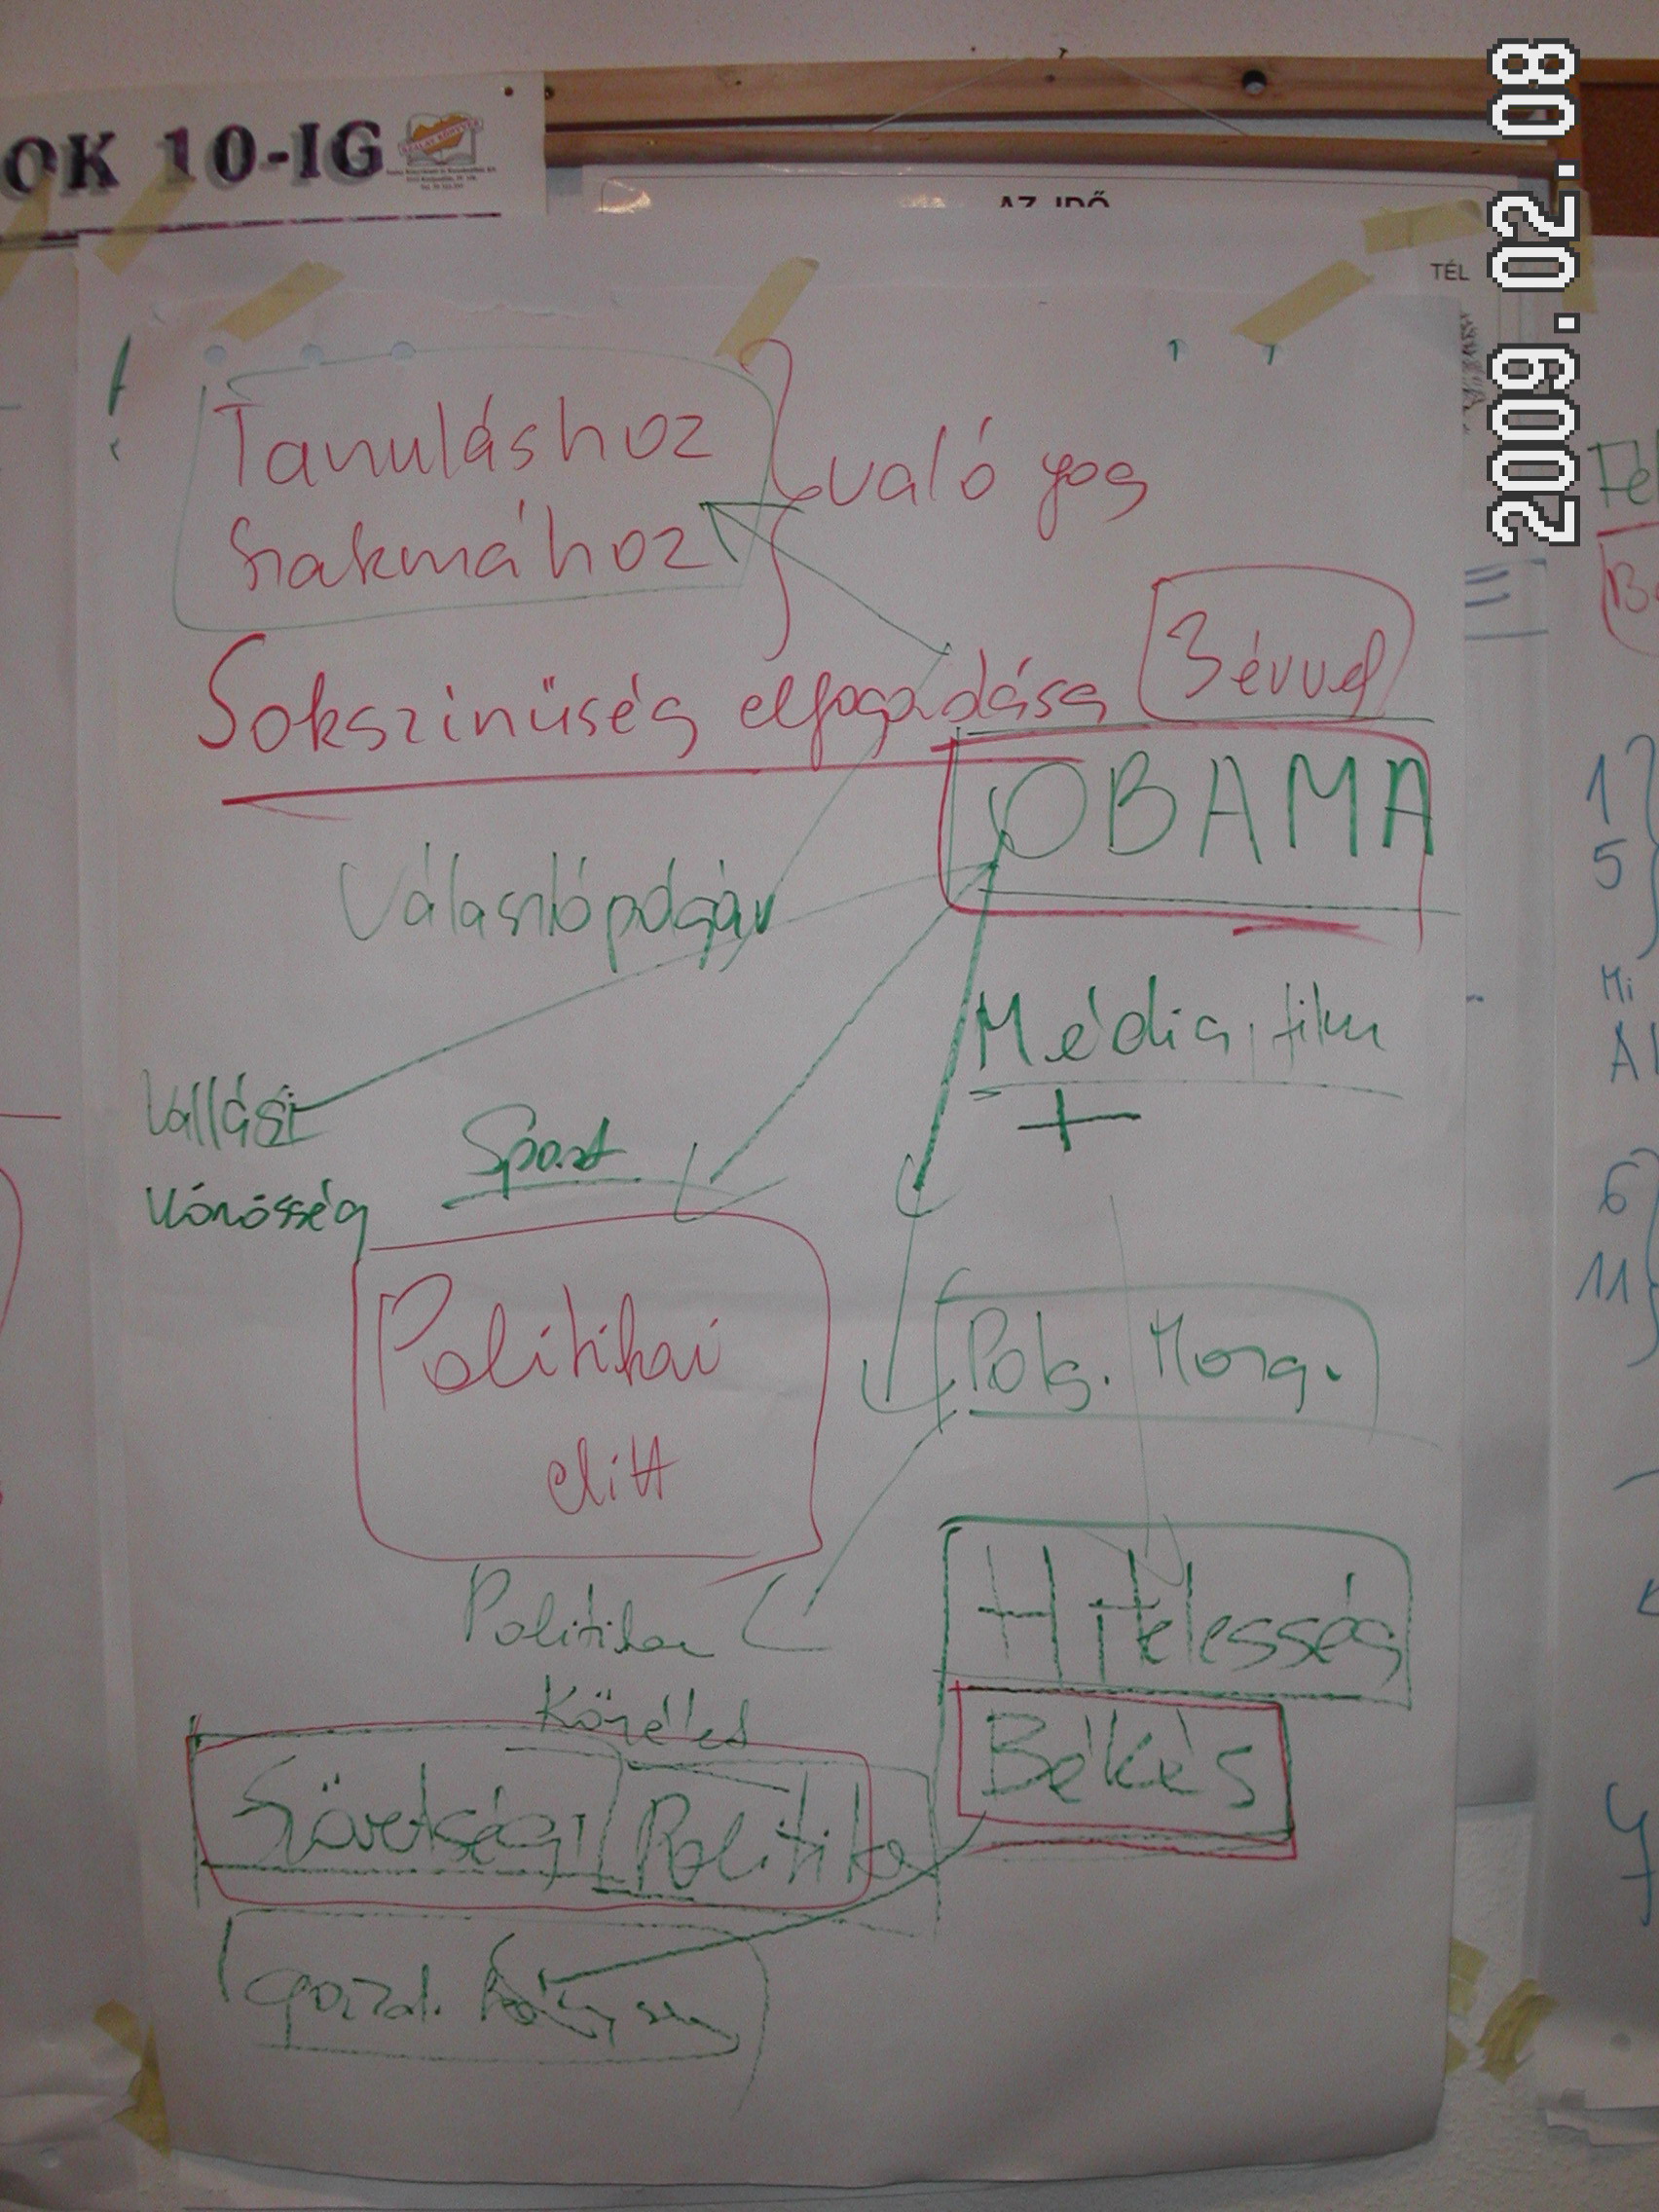 OK 10-IG
AZ IDŐ
TÉL
2009.02.08
Tanuláshoz
Szakmához
való jog
Sokszinüség elfogadása
3 évvel
OBAMA
Választópolgár
Média, film
+
Vallási
Közösség
Sport
Politikai
elitt
Polg. Mozg.
Politikai
Közélet
Hitelesség
Békés
Szövetségi Politika
gazd.
1
5
Mi
6
11